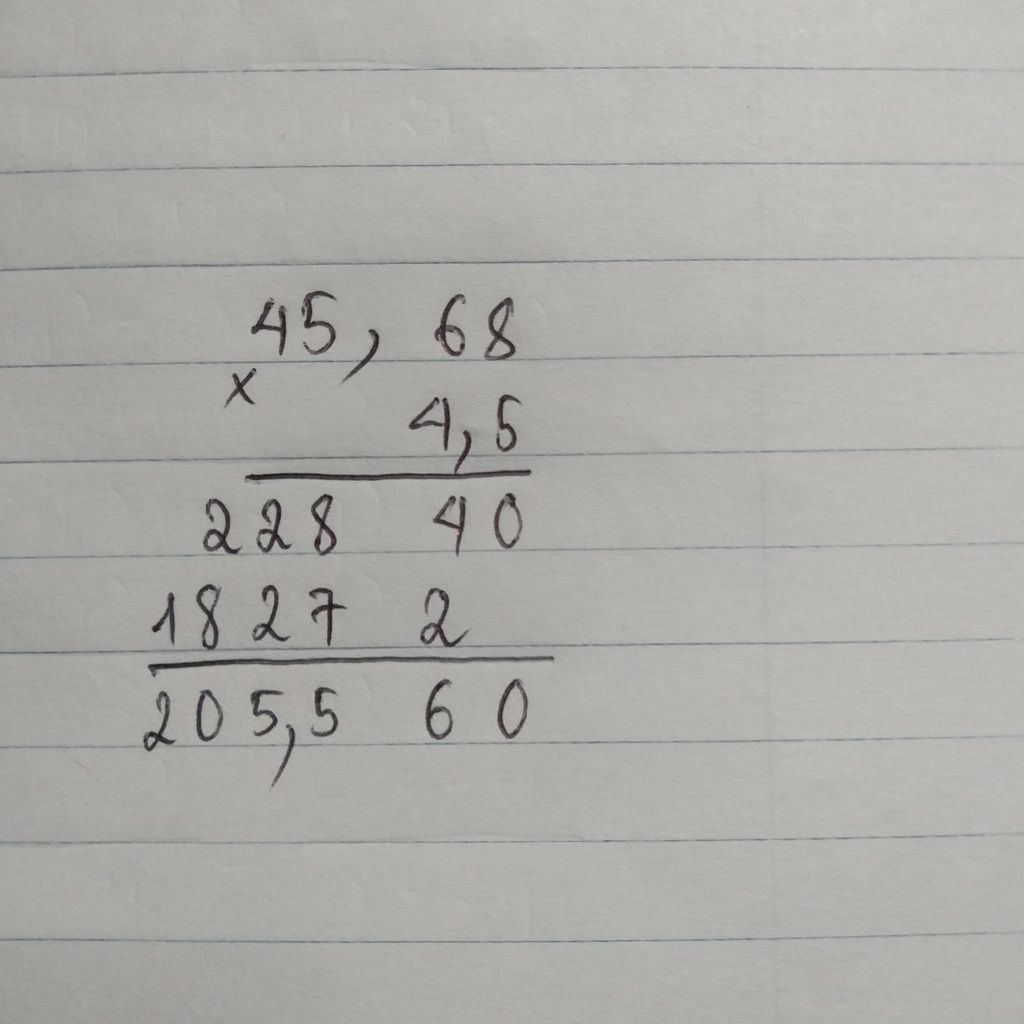 45, 68
x
4,5
228 40
1827 2
205,5 60